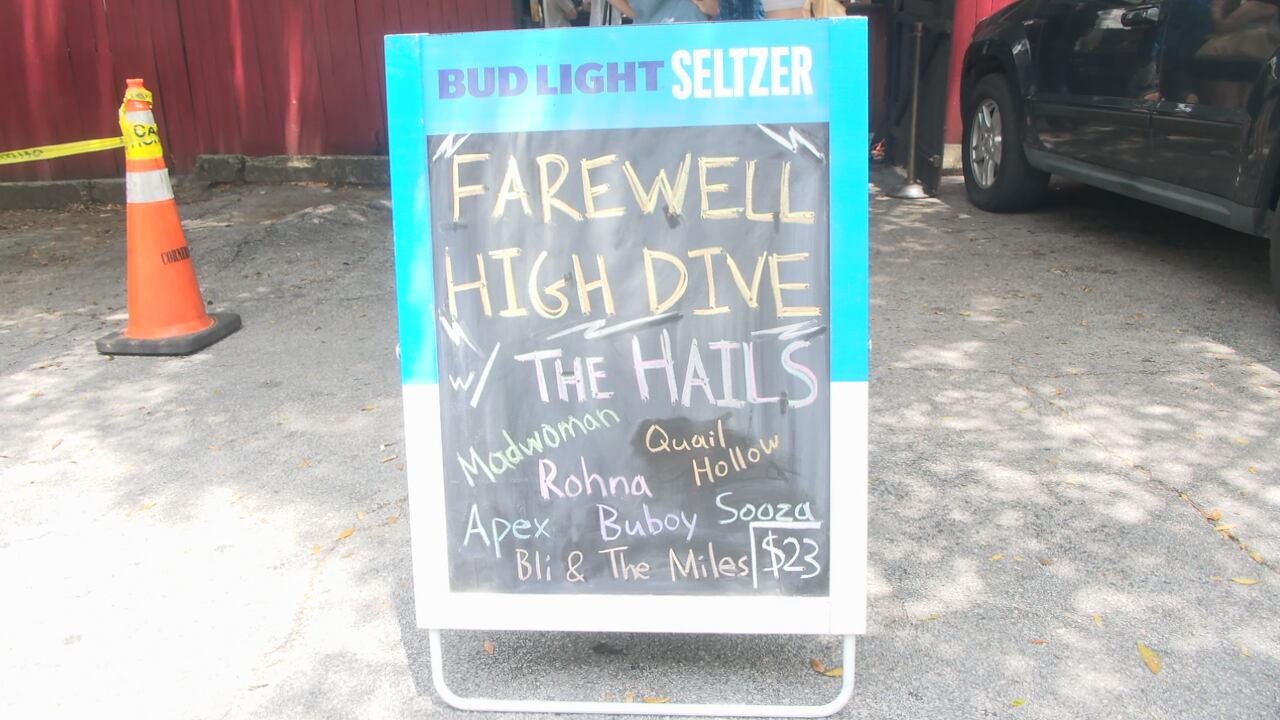 BUD LIGHT SELTZER
FAREWELL
HIGH DIVE
w/ THE HAILS
Madwoman
Quail
Hollow
Rohna
Sooza
Apex
Buboy
Bli & The Miles
$23